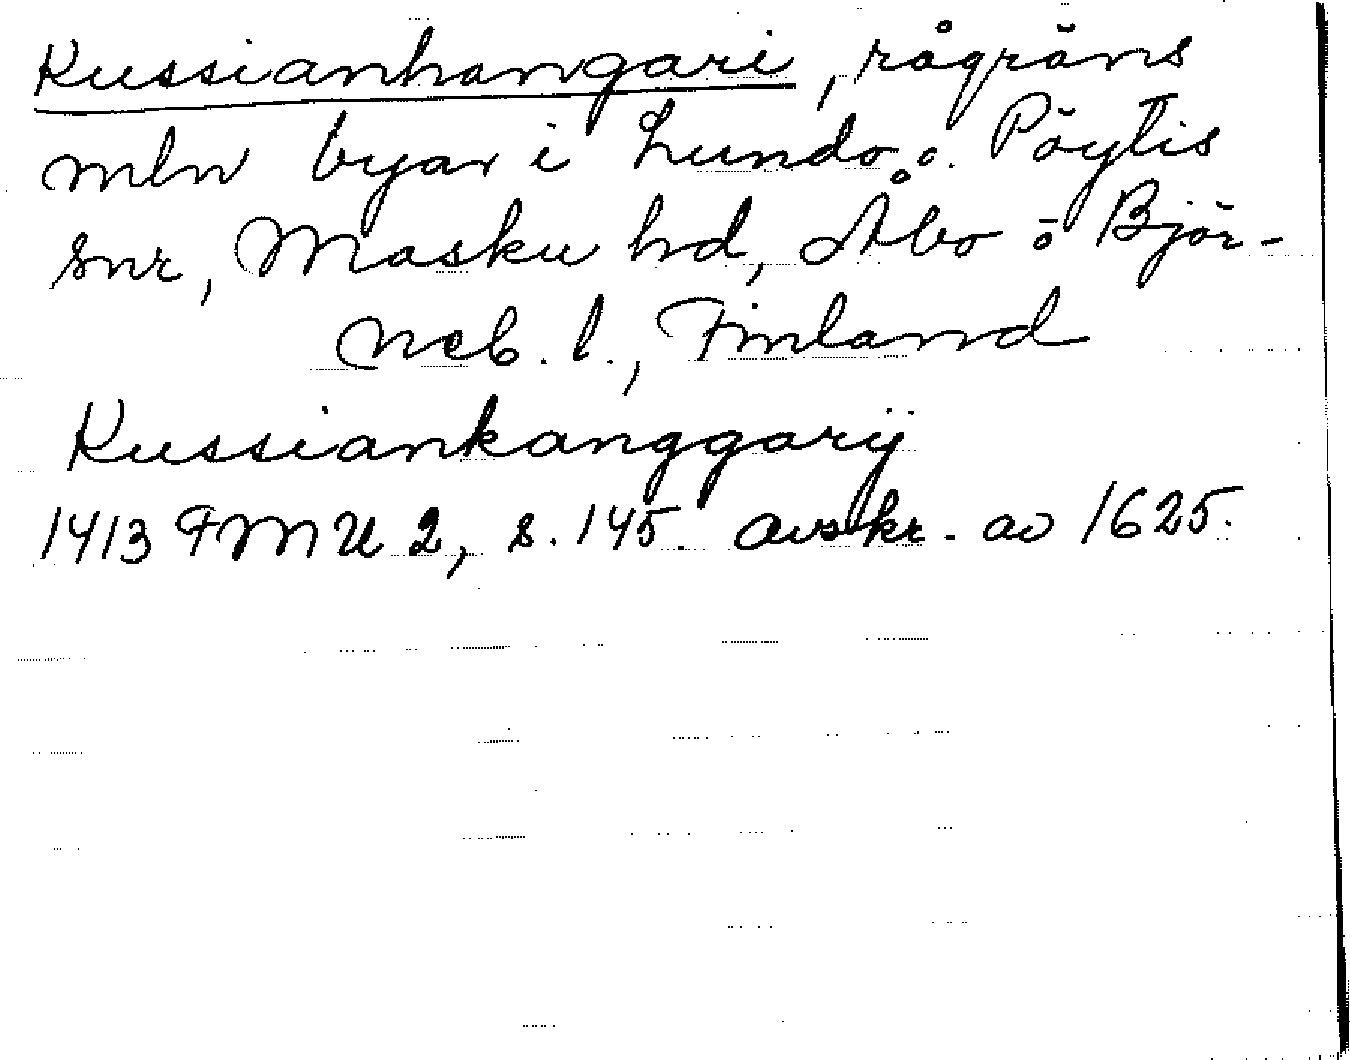 Kussianhangari, rågräns
mln byar i Lundo o. Pöytis
snr, Masku hd, Åbo o Björ-
neb. l., Finland
Kussiankanggarÿ
1413 FMU 2, s. 145. avskr. av 1625.